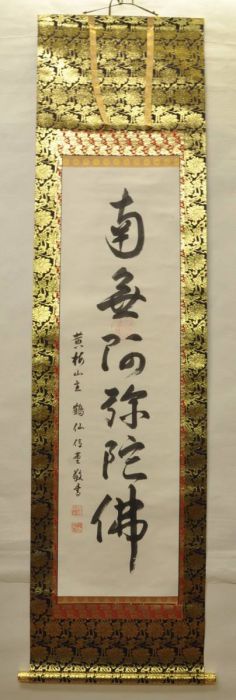 南無阿弥陀佛
黄梅山主 鶴仙 敬書